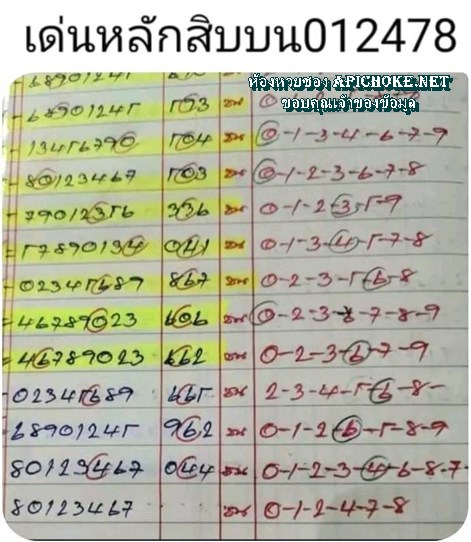 เด่นหลักสิบบน012478
ห้องหวยซอง APICHOKE.NET
ขอบคุณเจ้าของข้อมูล
-68901245 503 บน
-13456790 504 บน 0-1-3-4-6-7-9
-80123467 503 บน 0-1-2-3-6-7-8
-79012356 336 บน 0-1-2-3-5-9
=57890134 041 บน 0-1-3-4-5-7-8
-02345689 867 บน 0-2-3-5-6-8
=46789023 606 บน 0-2-3-6-7-8-9
=46789023 662 บน 0-2-3-6-7-9
-02345689 665 บน 2-3-4-5-6-8-
-68901245 962 บน 0-1-2-6-5-8-9
80123467 044 บน 0-1-2-3-4-6-8-7-
80123467 บน 0-1-2-4-7-8